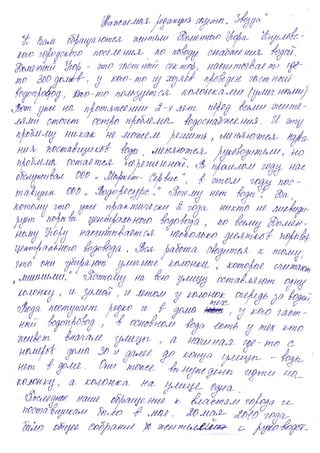 Уважаемая редакция газеты "Звезда"
К Вам обращаются жители Доменного Угора Кирилов-
ского городского поселения по поводу снабжения водой.
Доменный Угор - это частный сектор, насчитывается где-
то 300 домов, у кого-то из домов проведен частный
водопровод, кто-то пользуется колонками (уличными)
Вот уже на протяжении 2-х лет перед всеми жите-
лями стоит остро проблема водоснабжения. И эту
проблему никак не можем решить, меняются
поставщики воды, меняются руководители, но
проблема остается нерешенной. В прошлом году нас
обслуживал ООО "Маркет-Сервис", в этом году пос-
тавщик ООО "Водоресурс". Почему нет воды? Да,
потому что уже практически 2 года никто не ликвиди-
рует порывы центрального водовода, по всему Домен-
ному Угору насчитывается несколько десятков порывов
центрального водовода. Вся работа сводится к тому,
что они убирают уличные колонки, которые считают
"лишними". Поэтому на всю улицу оставляют одну
колонку, и зимой, и летом у колонок очередь за водой
Вода поступает редко и в дома тех, у кого част-
ный водопровод, в основном вода есть у тех кто
живет вначале улицы, а начиная где-то с
номера дома 30 и далее до конца улицы - воды
нет в доме. Они тоже вынуждены идти на
колонку, а колонка на улице одна.
Последнее наше обращение к властям города и
поставщикам было в мае. 20 мая 2010 года
было общее собрание жителей с руководст-